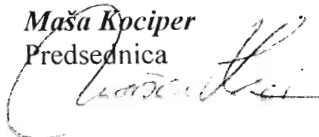 Maša Kociper
Predsednica